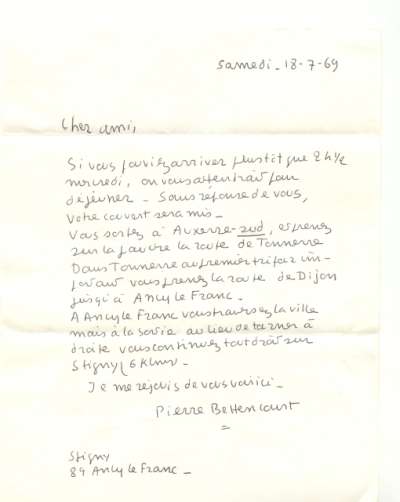 samedi - 18-7-69
Cher ami,
Si vous pouviez arriver plus tôt que 2h½
mercredi, on vous attendrait pour
déjeuner - Sans réponse de vous,
votre couvert sera mis -
Vous sortez à Auxerre-sud, et prenez
sur la gauche la route de Tonnerre
Dans Tonnerre au premier trifar im-
vous prenez la route de Dijon
jusqu'à Ancy le Franc.
A Ancy le Franc vous traversez la ville
mais à la sortie au lieu de tourner à
droite vous continuez tout droit sur
Stigny (6. Klms -
Je me réjouis de vous voir ici -
Pierre Bettencourt
Stigny
89 Ancy le Franc -